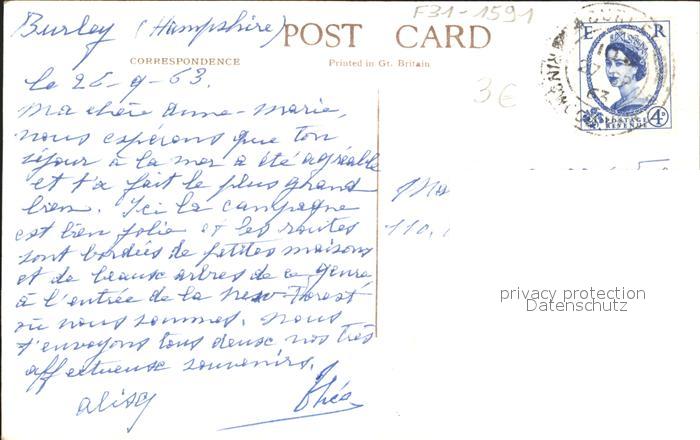 F31-1591
Burley (Hampshire)
POST CARD
CORRESPONDENCE
Printed in Gt. Britain
E R
POSTAGE
REVENUE
4D
3€
le 26-9-63.
Ma chère Anne-Marie,
nous espérons que ton
séjour à la mer a été agréable
et t'a fait le plus grand
bien. Ici la campagne
est bien jolie et les routes
sont bordées de petites maisons
et de beaux arbres de ce genre
à l'entrée de la New-Forest
où nous sommes. Nous
t'envoyons tous deux nos très
affectueux souvenirs.
Ma
110,
privacy protection
Datenschutz